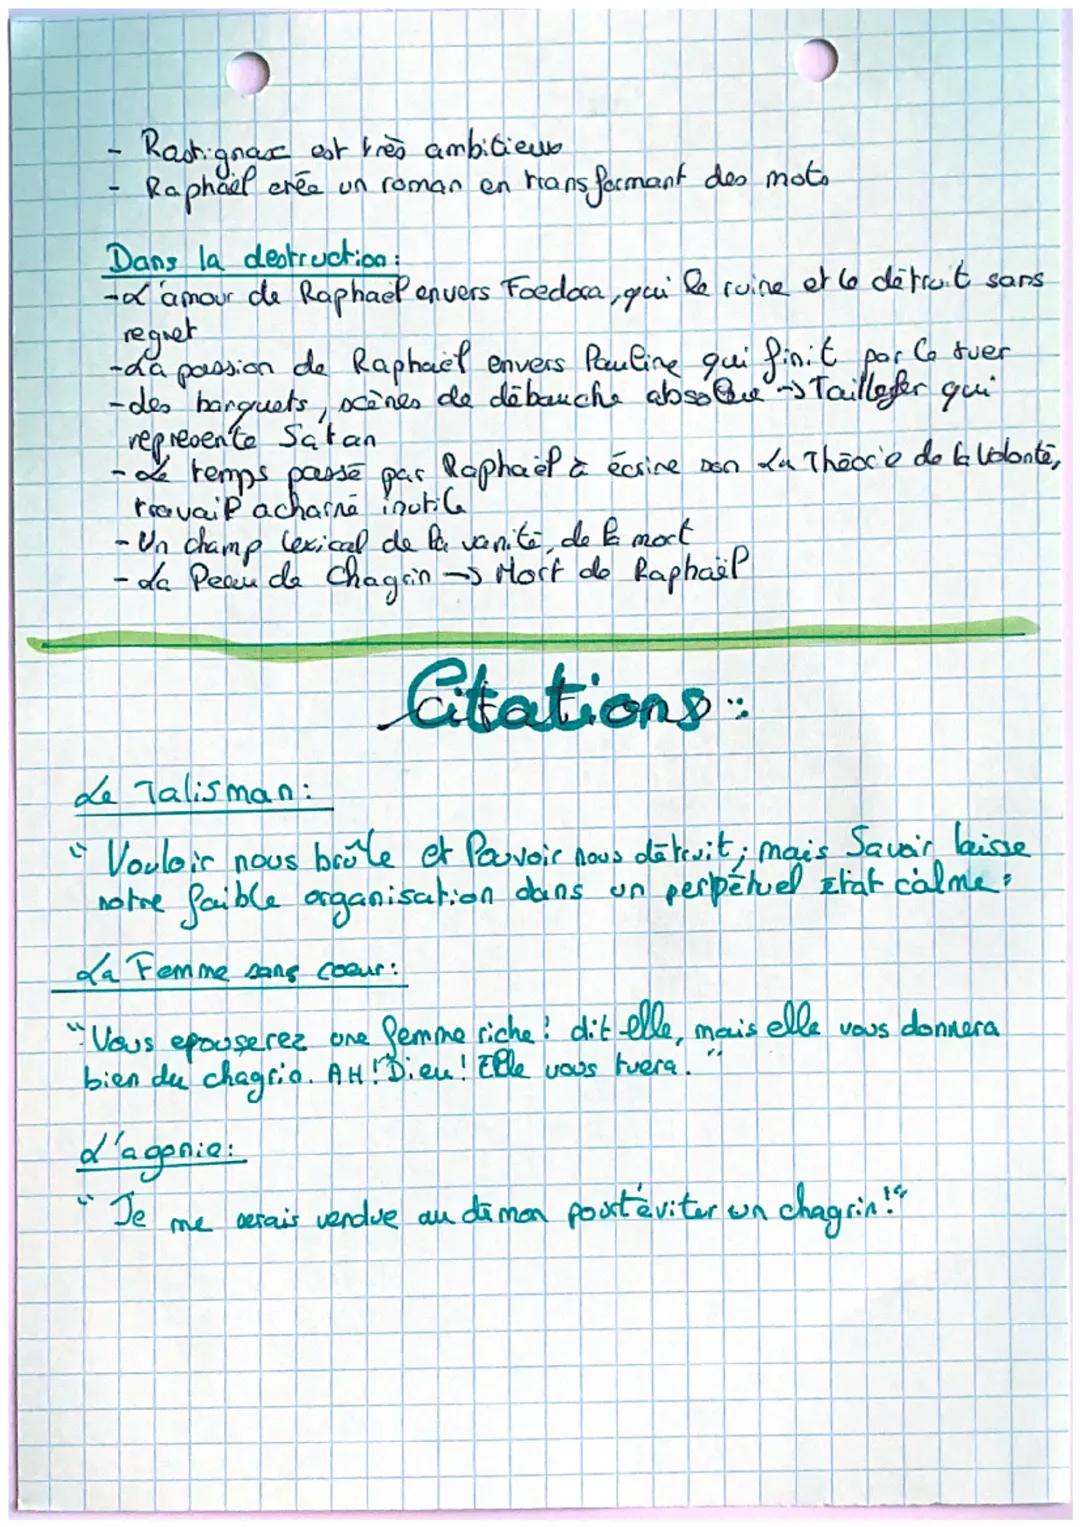 - Rastignac est très ambitieux
- Raphaël crée un roman en transformant des mots
Dans la destruction:
-L'amour de Raphaël envers Foedora, qui le ruine et le détruit sans
regret
-La passion de Raphaël envers Pauline qui finit par le tuer
-des banquets, scènes de débauche absolue → Taillefer qui
represente Satan
- Le temps passé par Raphaël à écrire son La Théorie de la Volonté,
travail acharné inutile
- Un champ lexical de la vanité, de la mort
- La Peau de Chagrin → Mort de Raphaël
Citations:
Le Talisman:
"Vouloir nous brûle et Pouvoir nous détruit; mais Savoir laisse
notre faible organisation dans un perpétuel état calme"
La Femme sans coeur:
"Vous epouserez une femme riche! dit-elle, mais elle vous donnera
bien du chagrin. AH! Dieu! Elle vous tuera."
L'agonie:
"Je me serais vendue au démon pour t'éviter un chagrin!"